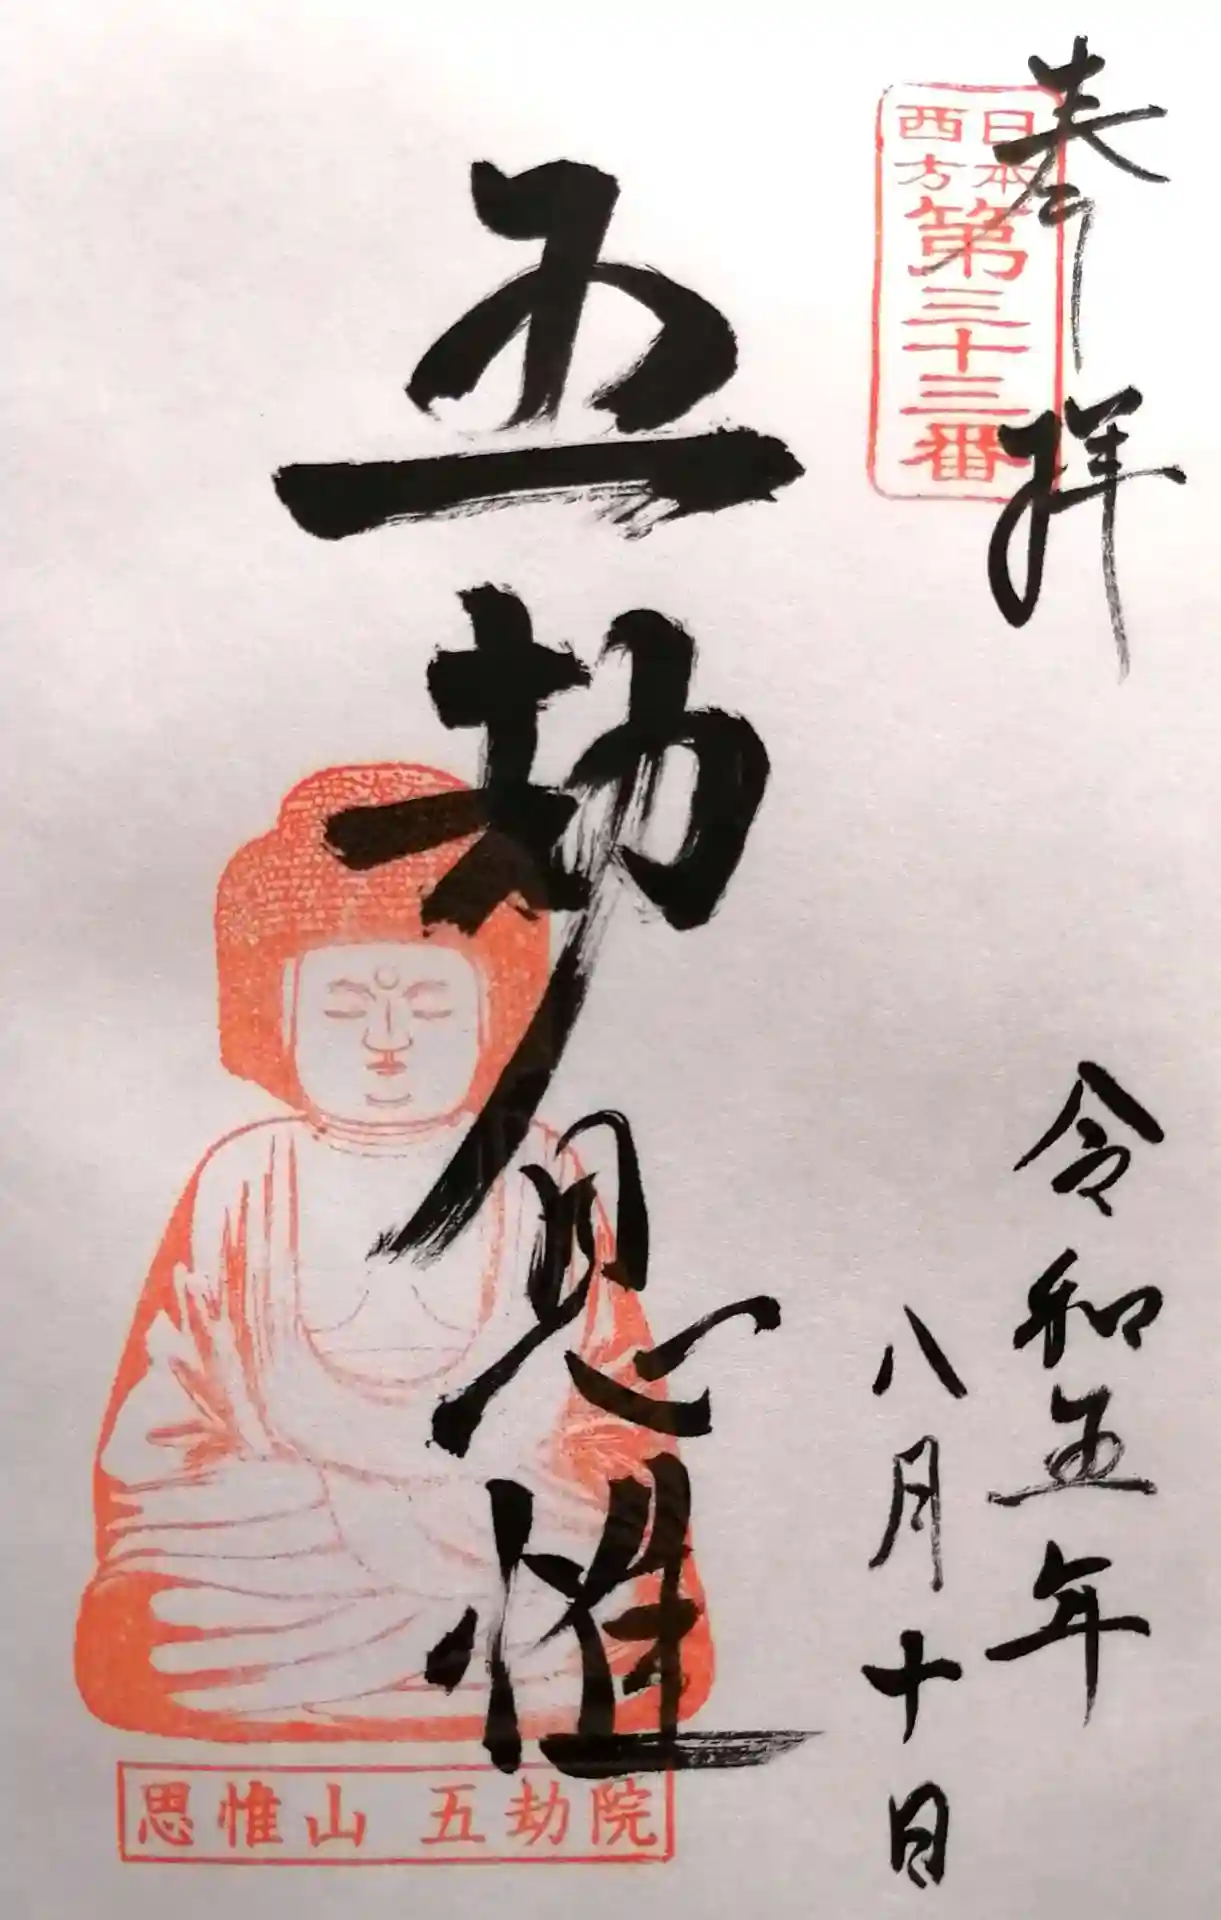 奉拝
日本
西方
第三十三番
令和五年
八月十日
五劫思惟
思惟山 五劫院